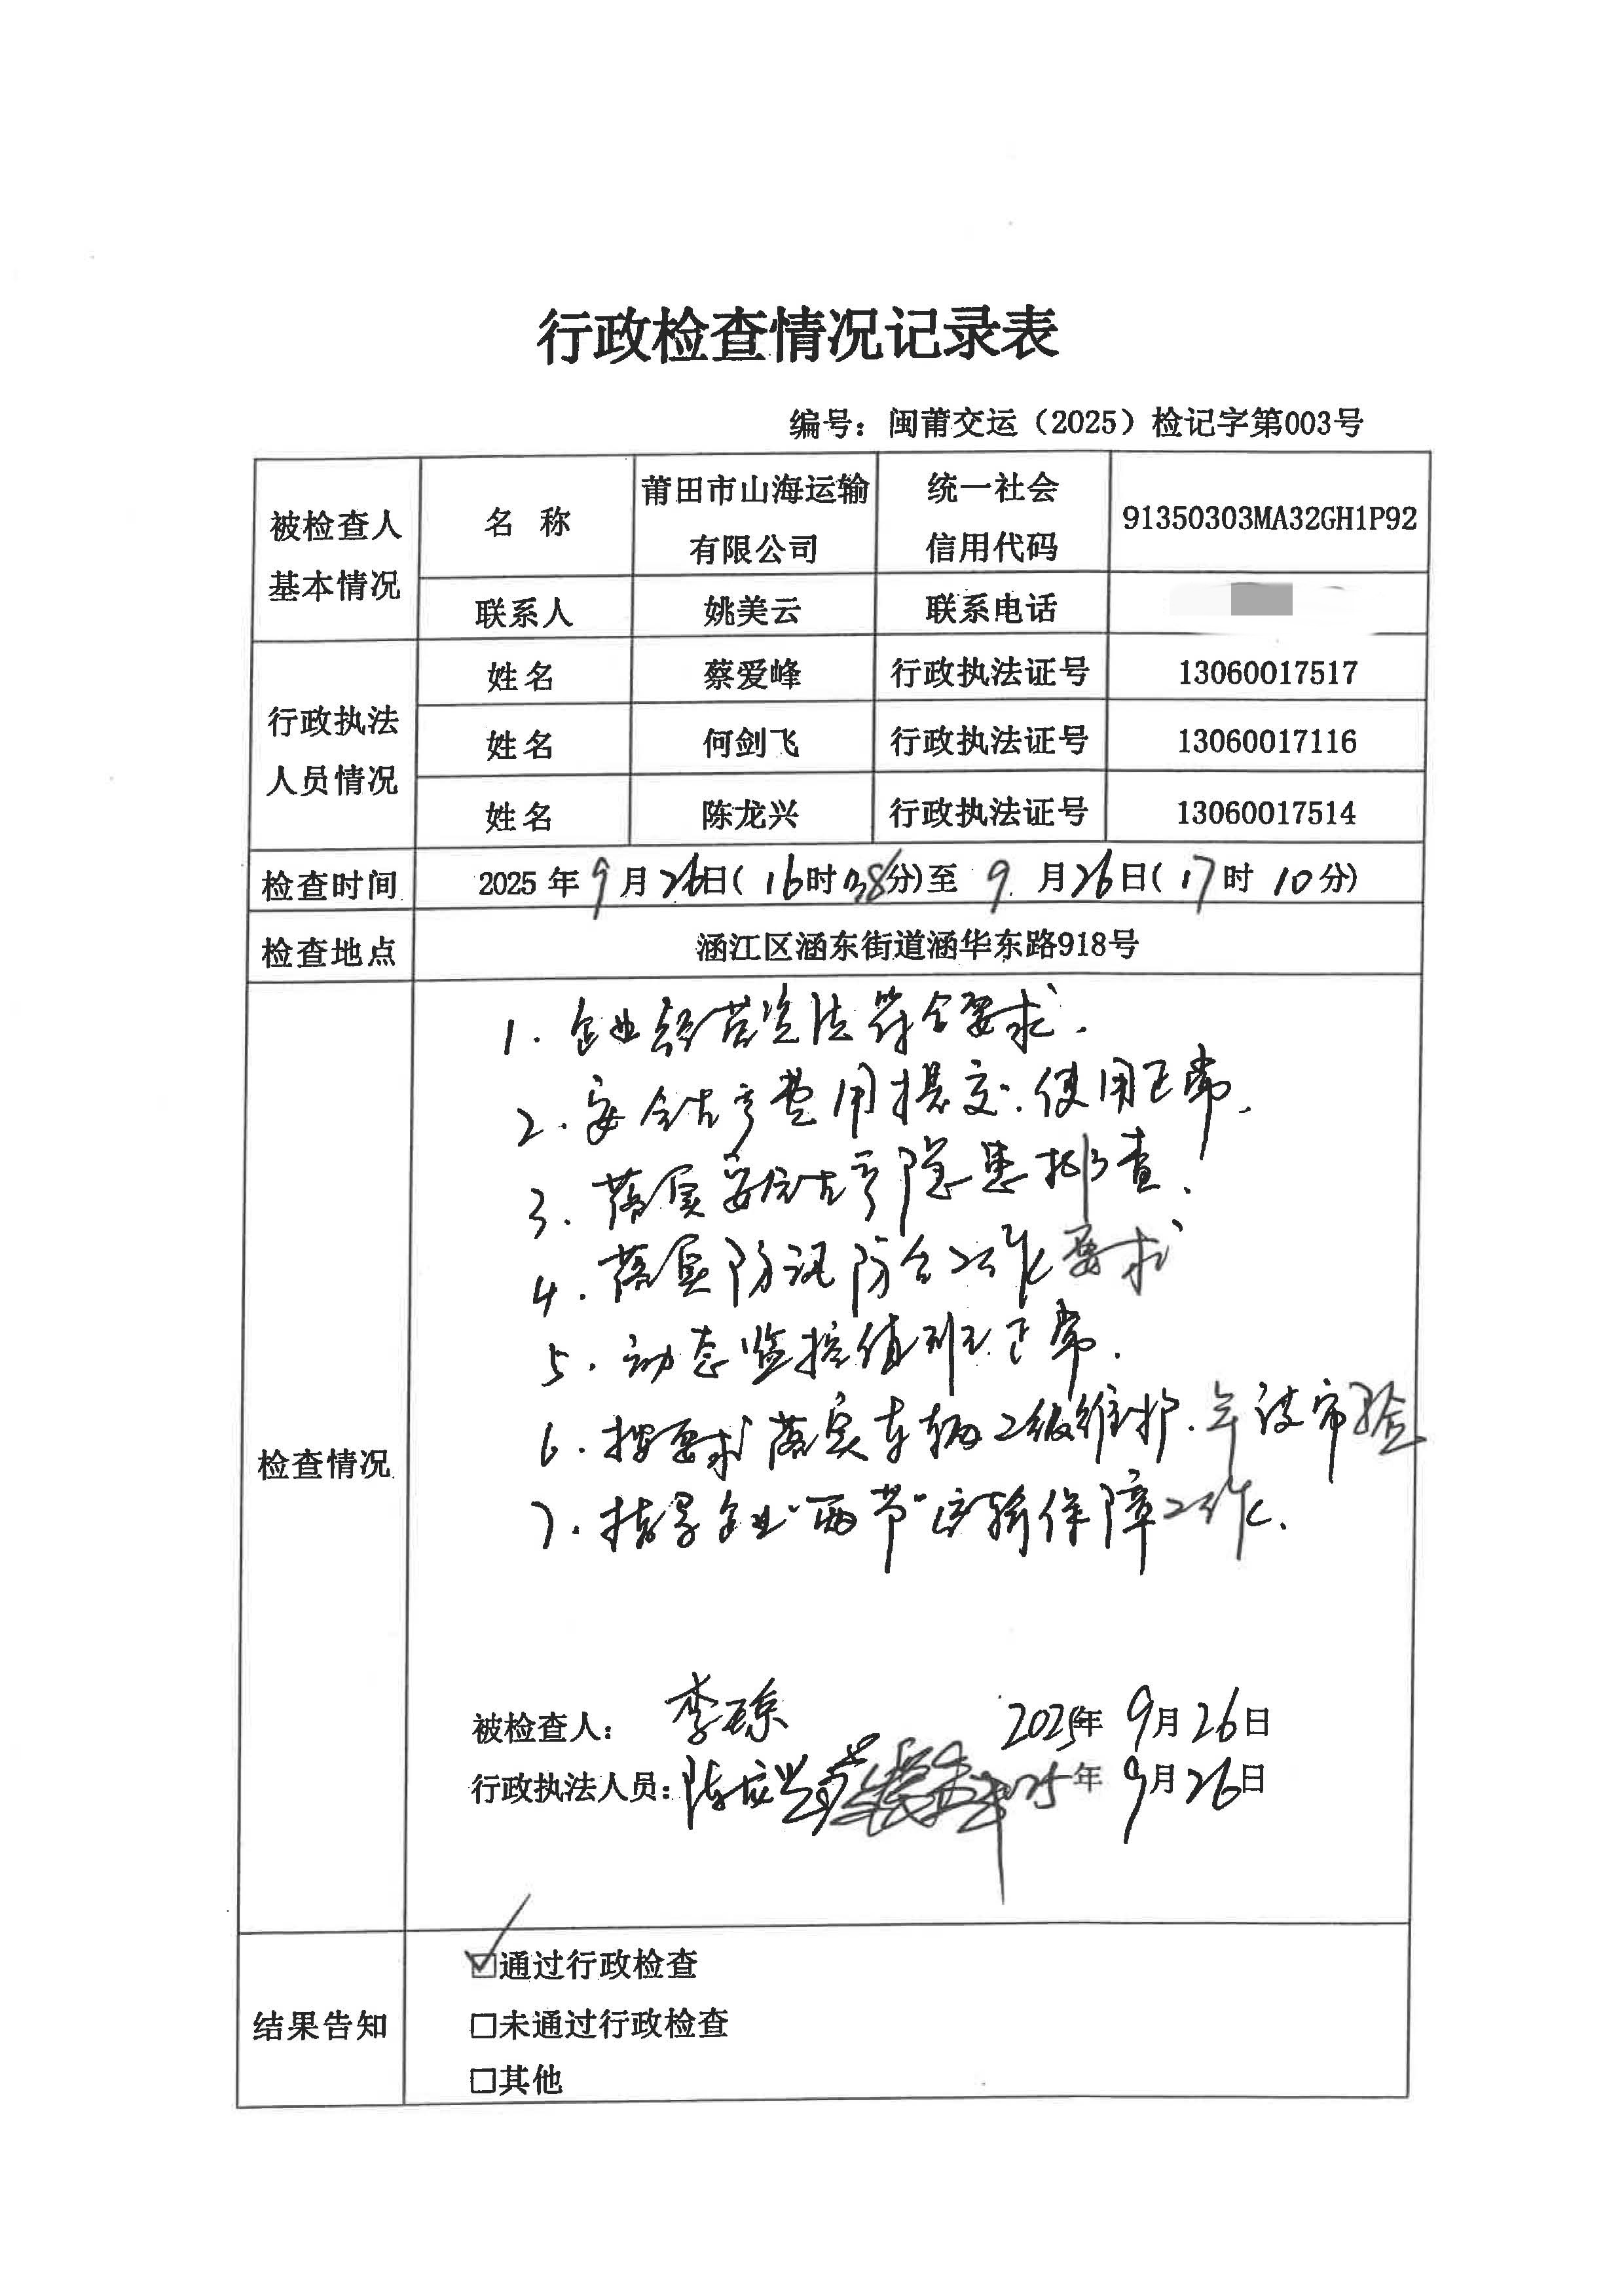 行政检查情况记录表
编号：闽莆交运（2025）检记字第003号
被检查人
基本情况
名 称
莆田市山海运输
有限公司
统一社会
信用代码
91350303MA32GH1P92
联系人
姚美云
联系电话
行政执法
人员情况
姓名
蔡爱峰
行政执法证号
13060017517
姓名
何剑飞
行政执法证号
13060017116
姓名
陈龙兴
行政执法证号
13060017514
检查时间
2025年9月26日(16时38分)至9月26日(17时10分)
检查地点
涵江区涵东街道涵华东路918号
检查情况
1. 企业经营资法符合要求.
2. 安全生产费用提交.使用正常.
3. 落实安全生产隐患排查.
4. 落实防汛防台工作要求
5. 动态监控值班正常.
6. 按要求落实车辆二级维护.年度审验
7. 指导企业"两节"运输保障工作.
被检查人：李琼 2025年9月26日
行政执法人员：陈龙兴 2025年9月26日
结果告知
☑通过行政检查
□未通过行政检查
□其他